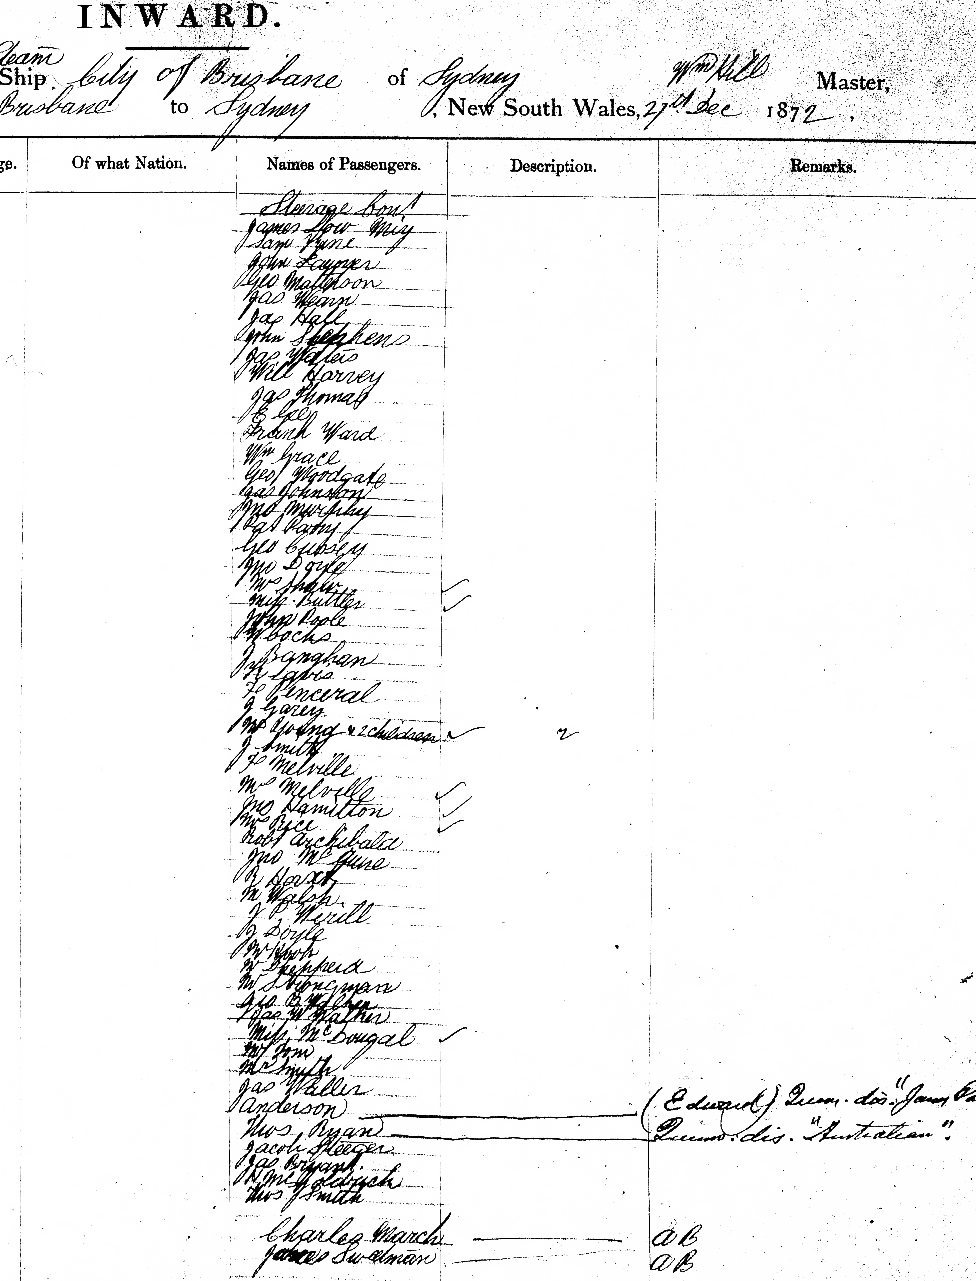 INWARD.
Steam
Ship City of Brisbane of Sydney Wm Hill Master,
Brisbane to Sydney, New South Wales, 27th Dec 1872.
ge. Of what Nation. Names of Passengers. Description. Remarks.
Steerage Cont
James Low Miy
Saml
John
Geo Matterson
Jas Wearn
Jas Hall
John Stephens
Jas Waters
Will Harvey
Jas Thomas
E
Frank Ward
Wm Grace
Geo Woodgate
Jas Johnston
Jno Murphy
Pat
Geo Cussey
Jno Doyle
Mrs Shaw
Miss Butler
John Poole
W Cocks
J Banghan
F Penceral
J Garey
Mrs Young & 2 children 2
J Smith
F Melville
Mrs Melville
Jno Hamilton
Mrs Rice
Robt Archibald
Jno Mc
R
M Walsh
J P Werill
J Doyle
W
W Shepherd
W Strongman
Geo B Walker
Jas W Walker
Miss McDougal
Mr Tom
Mr Smith
Jas Waller
Anderson (Edward) Qum. dis. "Jam
Thos Ryan Qumo. dis. "Australian".
Jacob Steeger
Jas Bryant
H McGoldrich
Thos J Smith
Charles March A B
James Swedman A B